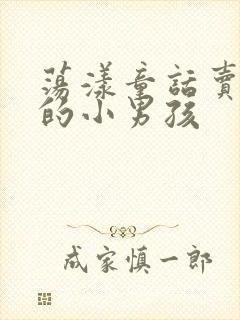 蕩漾童話賣
的小男孩
成家慎一郎